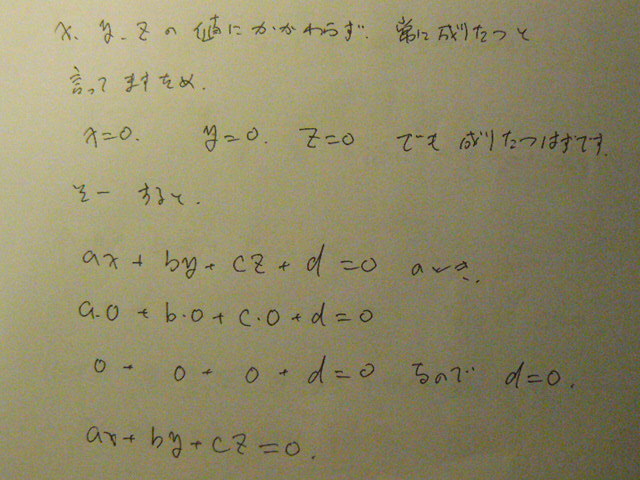 x、y、zの値にかかわらず、常に成りたつと
言ってますため、
x=0. y=0. z=0 でも 成りたつはずです。
そー すると、
ax + by + cz + d = 0
a・0 + b・0 + c・0 + d = 0
0 + 0 + 0 + d = 0 なので d=0.
ax + by + cz = 0.